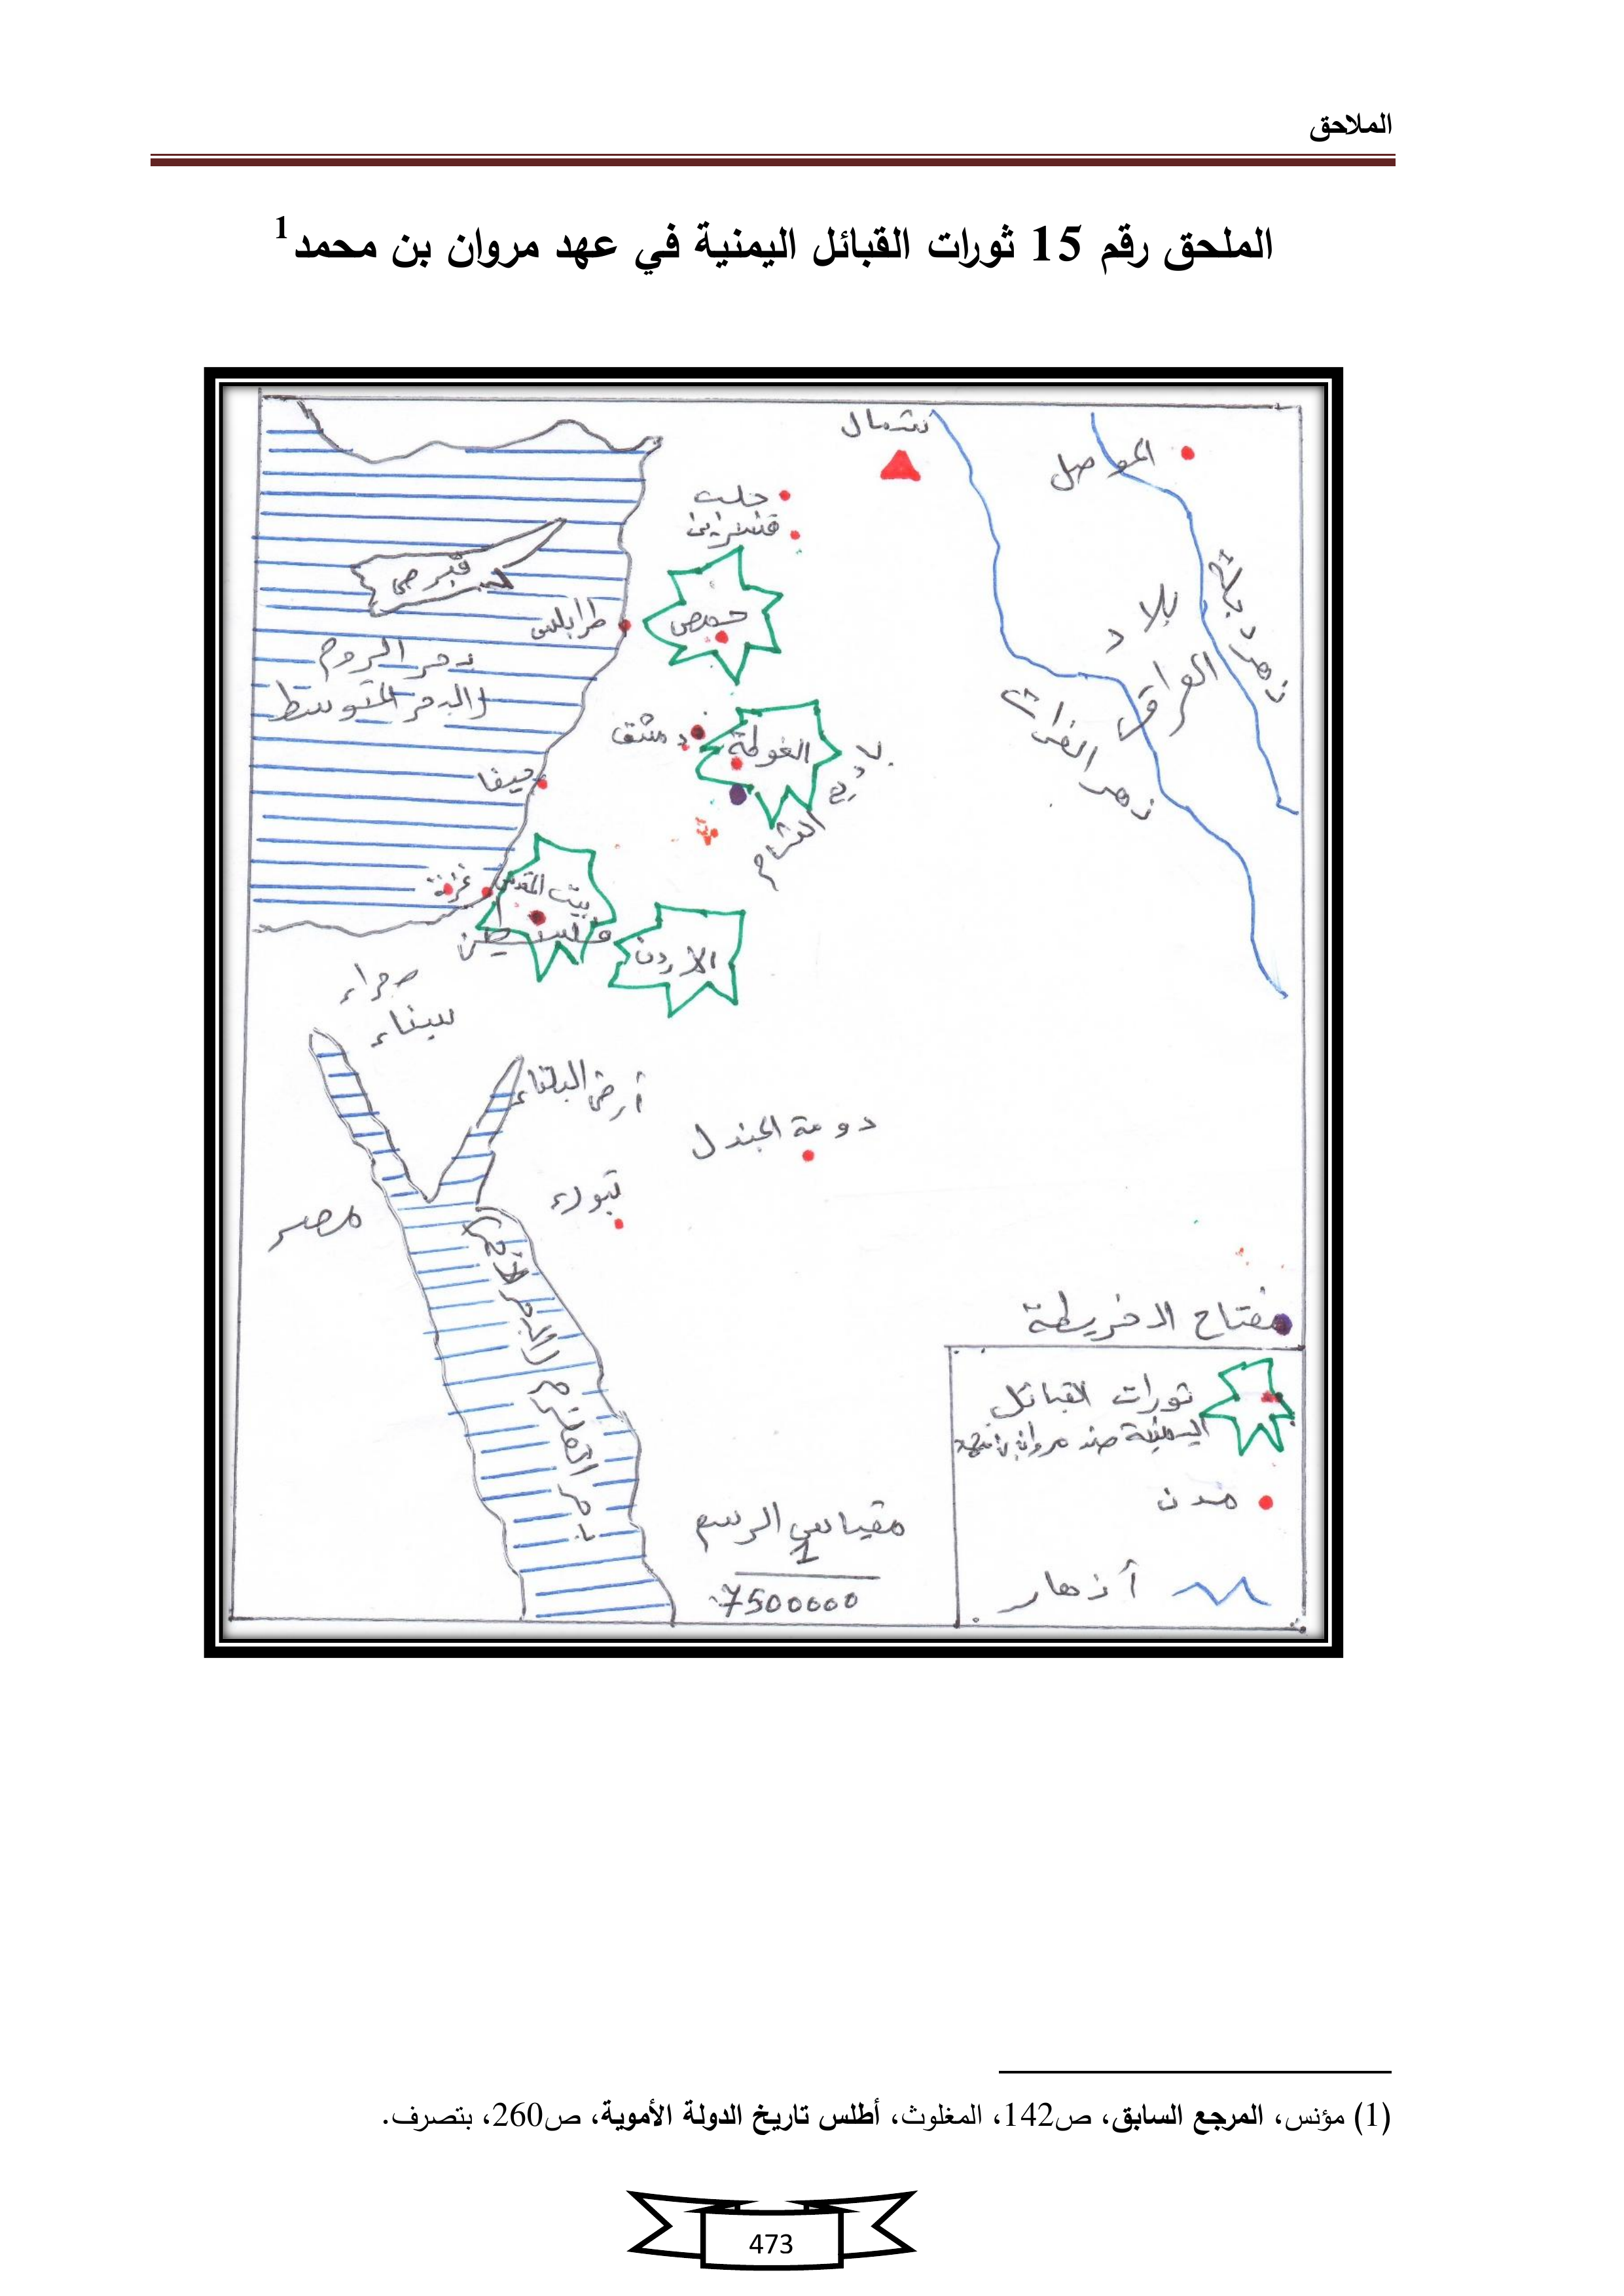 الملاحق
الملحق رقم 15 ثورات القبائل اليمنية في عهد مروان بن محمد1
شمال
الموصل
حلب
قنسرين
قبرص
حمص
طرابلس
نهر دجلة
بلاد
العراق
بحر الروم
(البحر المتوسط
نهر الفرات
دمشق
الغوطة
بادية الشام
حيفا
غزة
بيت المقدس
فلسطين
الأردن
صحراء
سيناء
أرض البلقاء
دومة الجندل
تبوك
مصر
بحر القلزم (البحر الأحمر)
مفتاح الخريطة
ثورات القبائل
اليمنية ضد مروان بن محمد
مدن
أنهار
مقياس الرسم
1
7500000
(1) مؤنس، المرجع السابق، ص142، المغلوث، أطلس تاريخ الدولة الأموية، ص260، بتصرف.
473